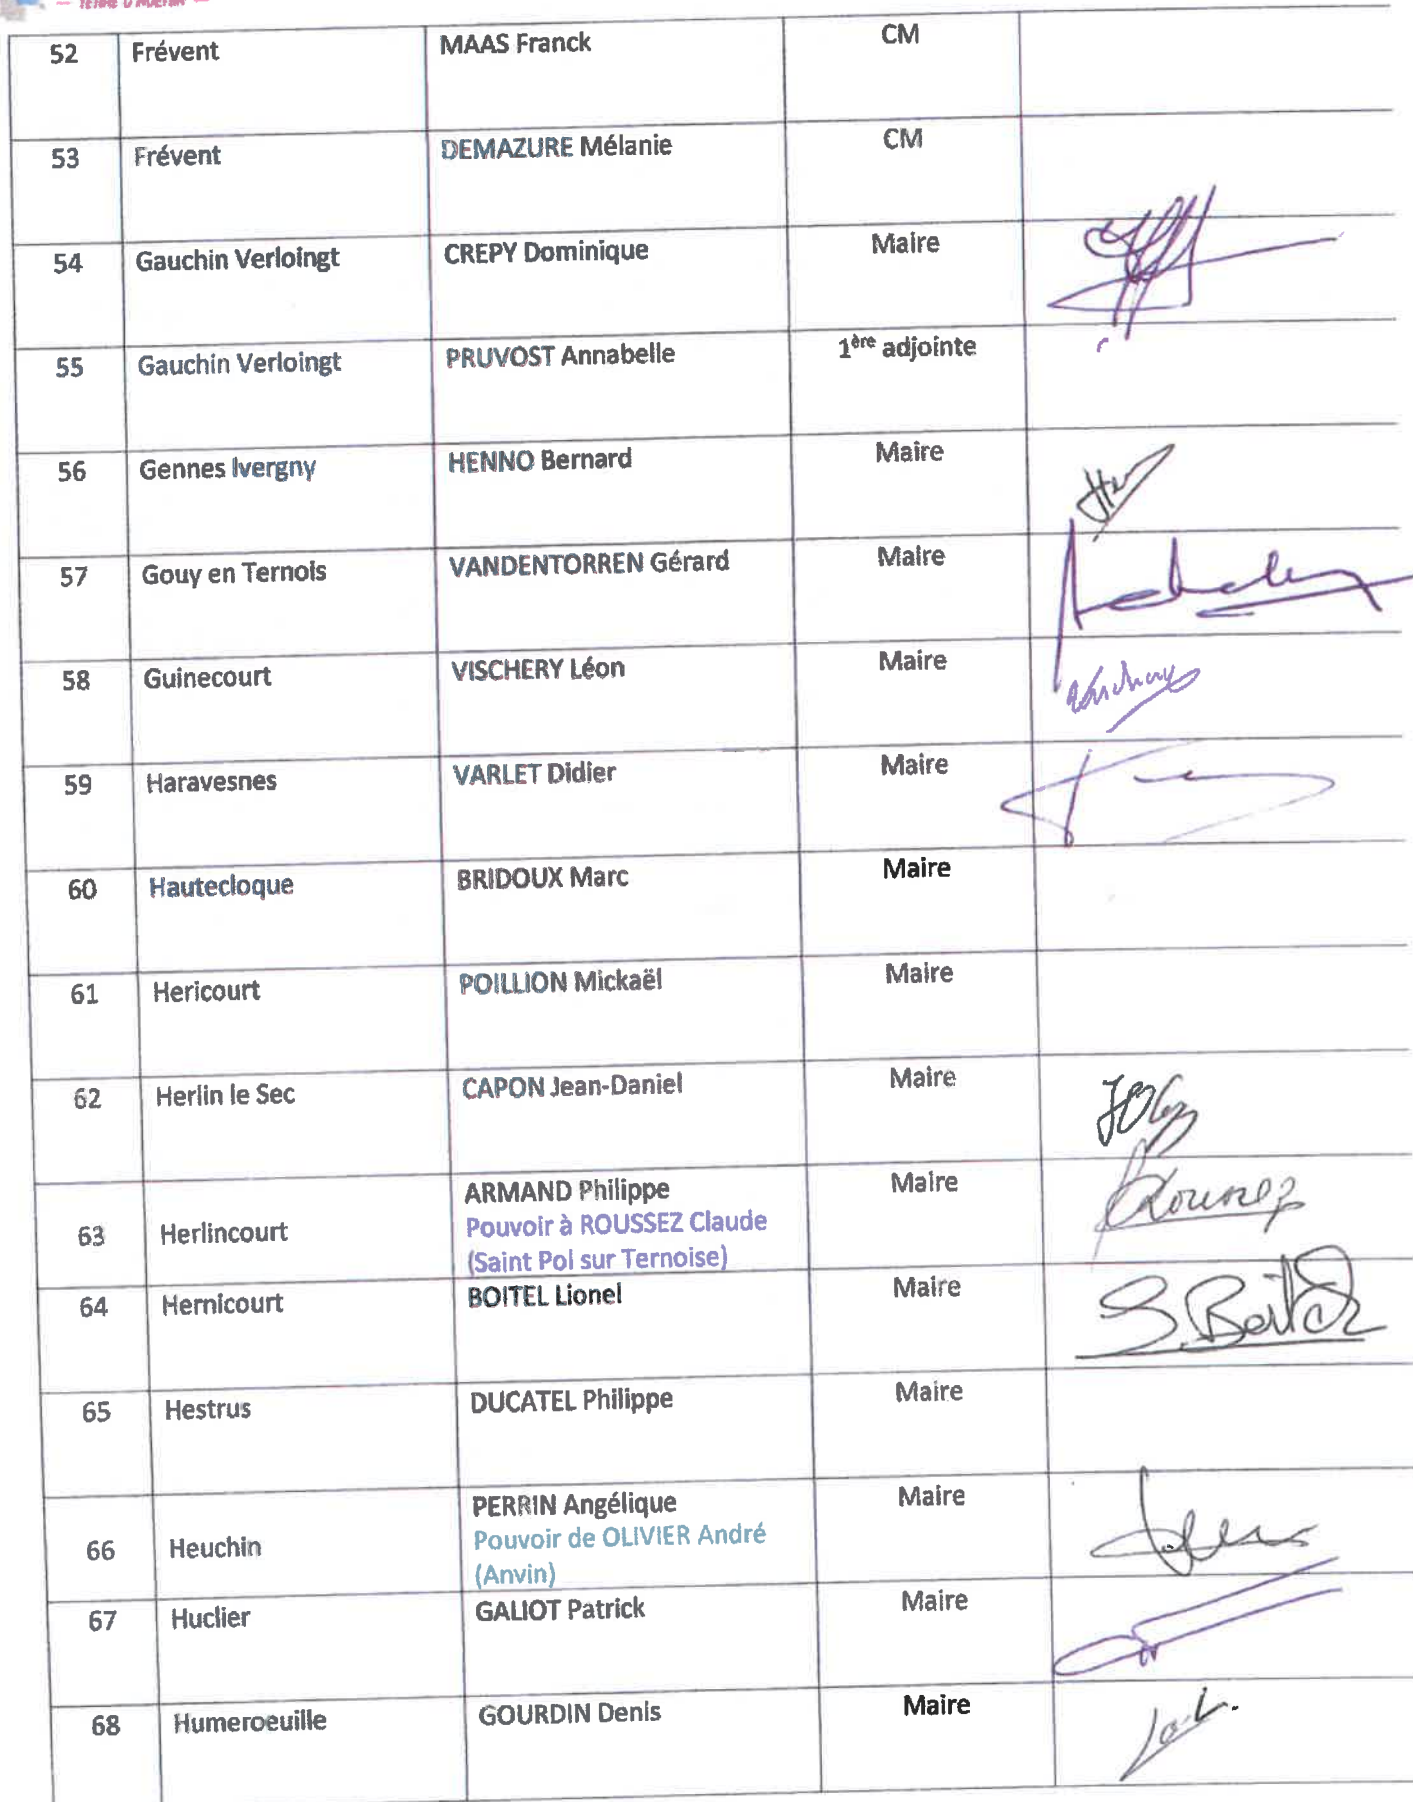 — TERRE D'AVENIR —
52 Frévent MAAS Franck CM
53 Frévent DEMAZURE Mélanie CM
54 Gauchin Verloingt CREPY Dominique Maire
55 Gauchin Verloingt PRUVOST Annabelle 1ère adjointe
56 Gennes Ivergny HENNO Bernard Maire
57 Gouy en Ternois VANDENTORREN Gérard Maire
58 Guinecourt VISCHERY Léon Maire
59 Haravesnes VARLET Didier Maire
60 Hautecloque BRIDOUX Marc Maire
61 Hericourt POILLION Mickaël Maire
62 Herlin le Sec CAPON Jean-Daniel Maire
63 Herlincourt ARMAND Philippe Maire
Pouvoir à ROUSSEZ Claude
(Saint Pol sur Ternoise)
64 Hernicourt BOITEL Lionel Maire
65 Hestrus DUCATEL Philippe Maire
66 Heuchin PERRIN Angélique Maire
Pouvoir de OLIVIER André
(Anvin)
67 Huclier GALIOT Patrick Maire
68 Humeroeuille GOURDIN Denis Maire